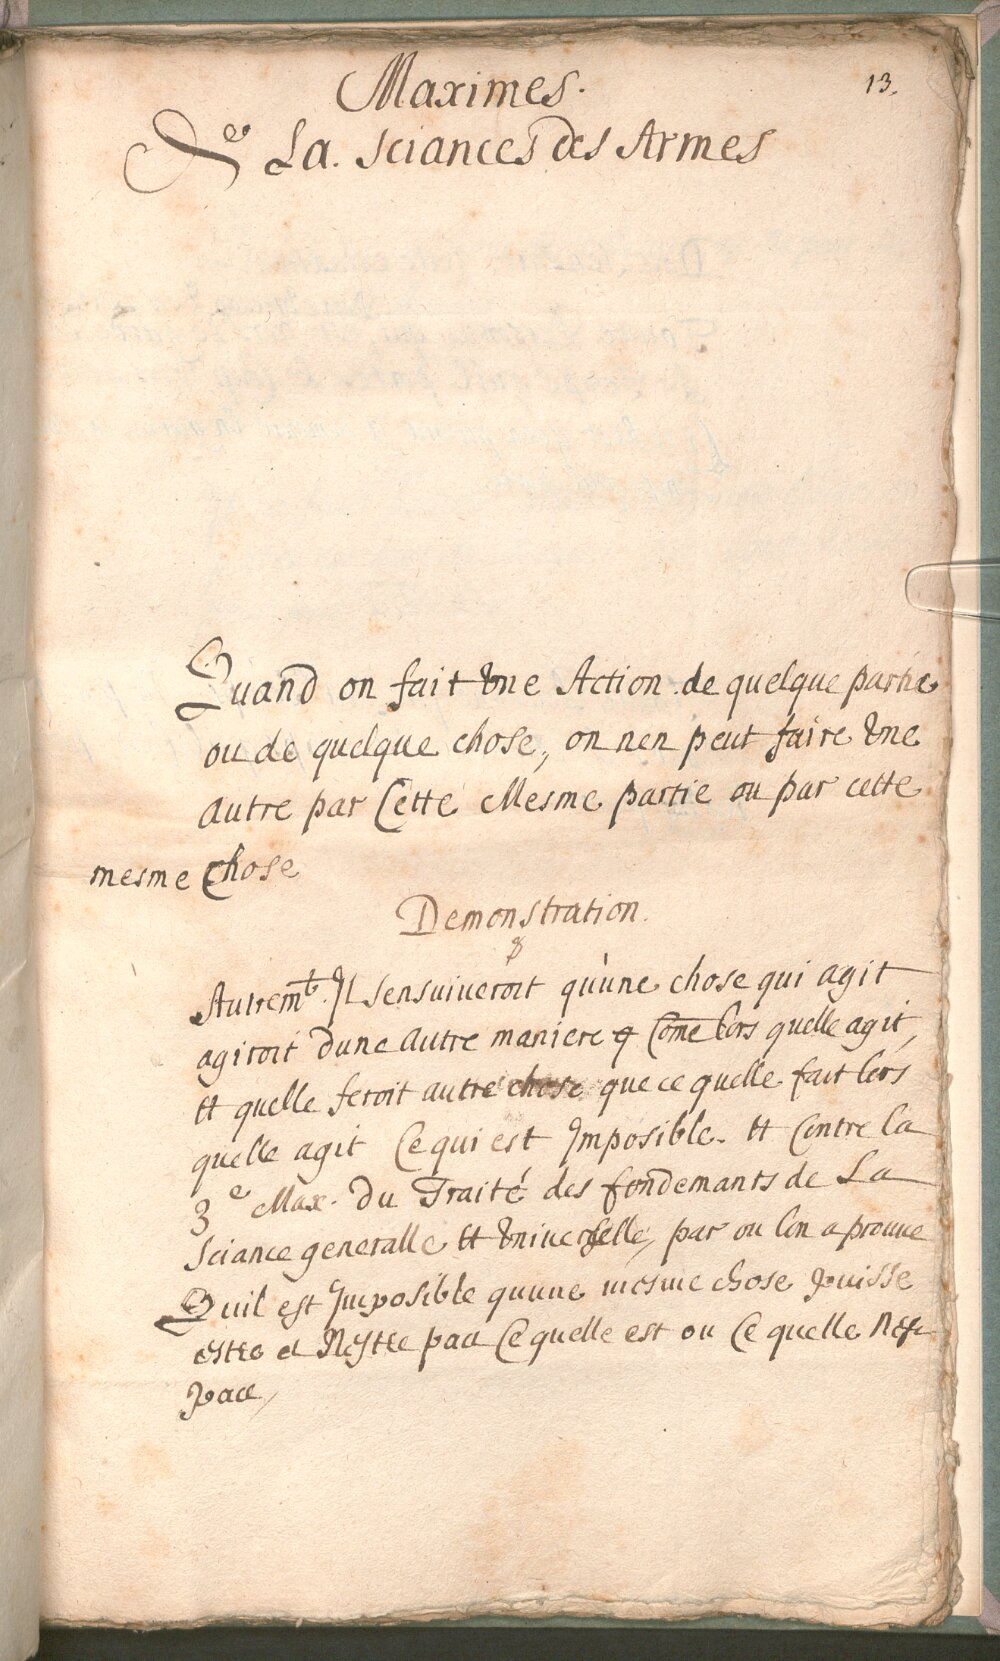 13.
Maximes.
De La. sciances des Armes
Quand on fait une Action de quelque partie
ou de quelque chose, on nen peut faire une
autre par Cette Mesme partie ou par cette
mesme Chose
Demonstration.
Autremt. Il sensuiveroit qu'une chose qui agit
agiroit dune autre maniere q Come lors quelle agit,
et quelle feroit autre chose que ce quelle fait lors
quelle agit Ce qui est Imposible. et Contre la
3e Max. du Traité des fondemants de La
sciance generalle et universelle, par ou lon a prouue
Quil est Imposible quune mesme chose puisse
estre et Nestre pas Ce quelle est ou Ce quelle Nest
pas,